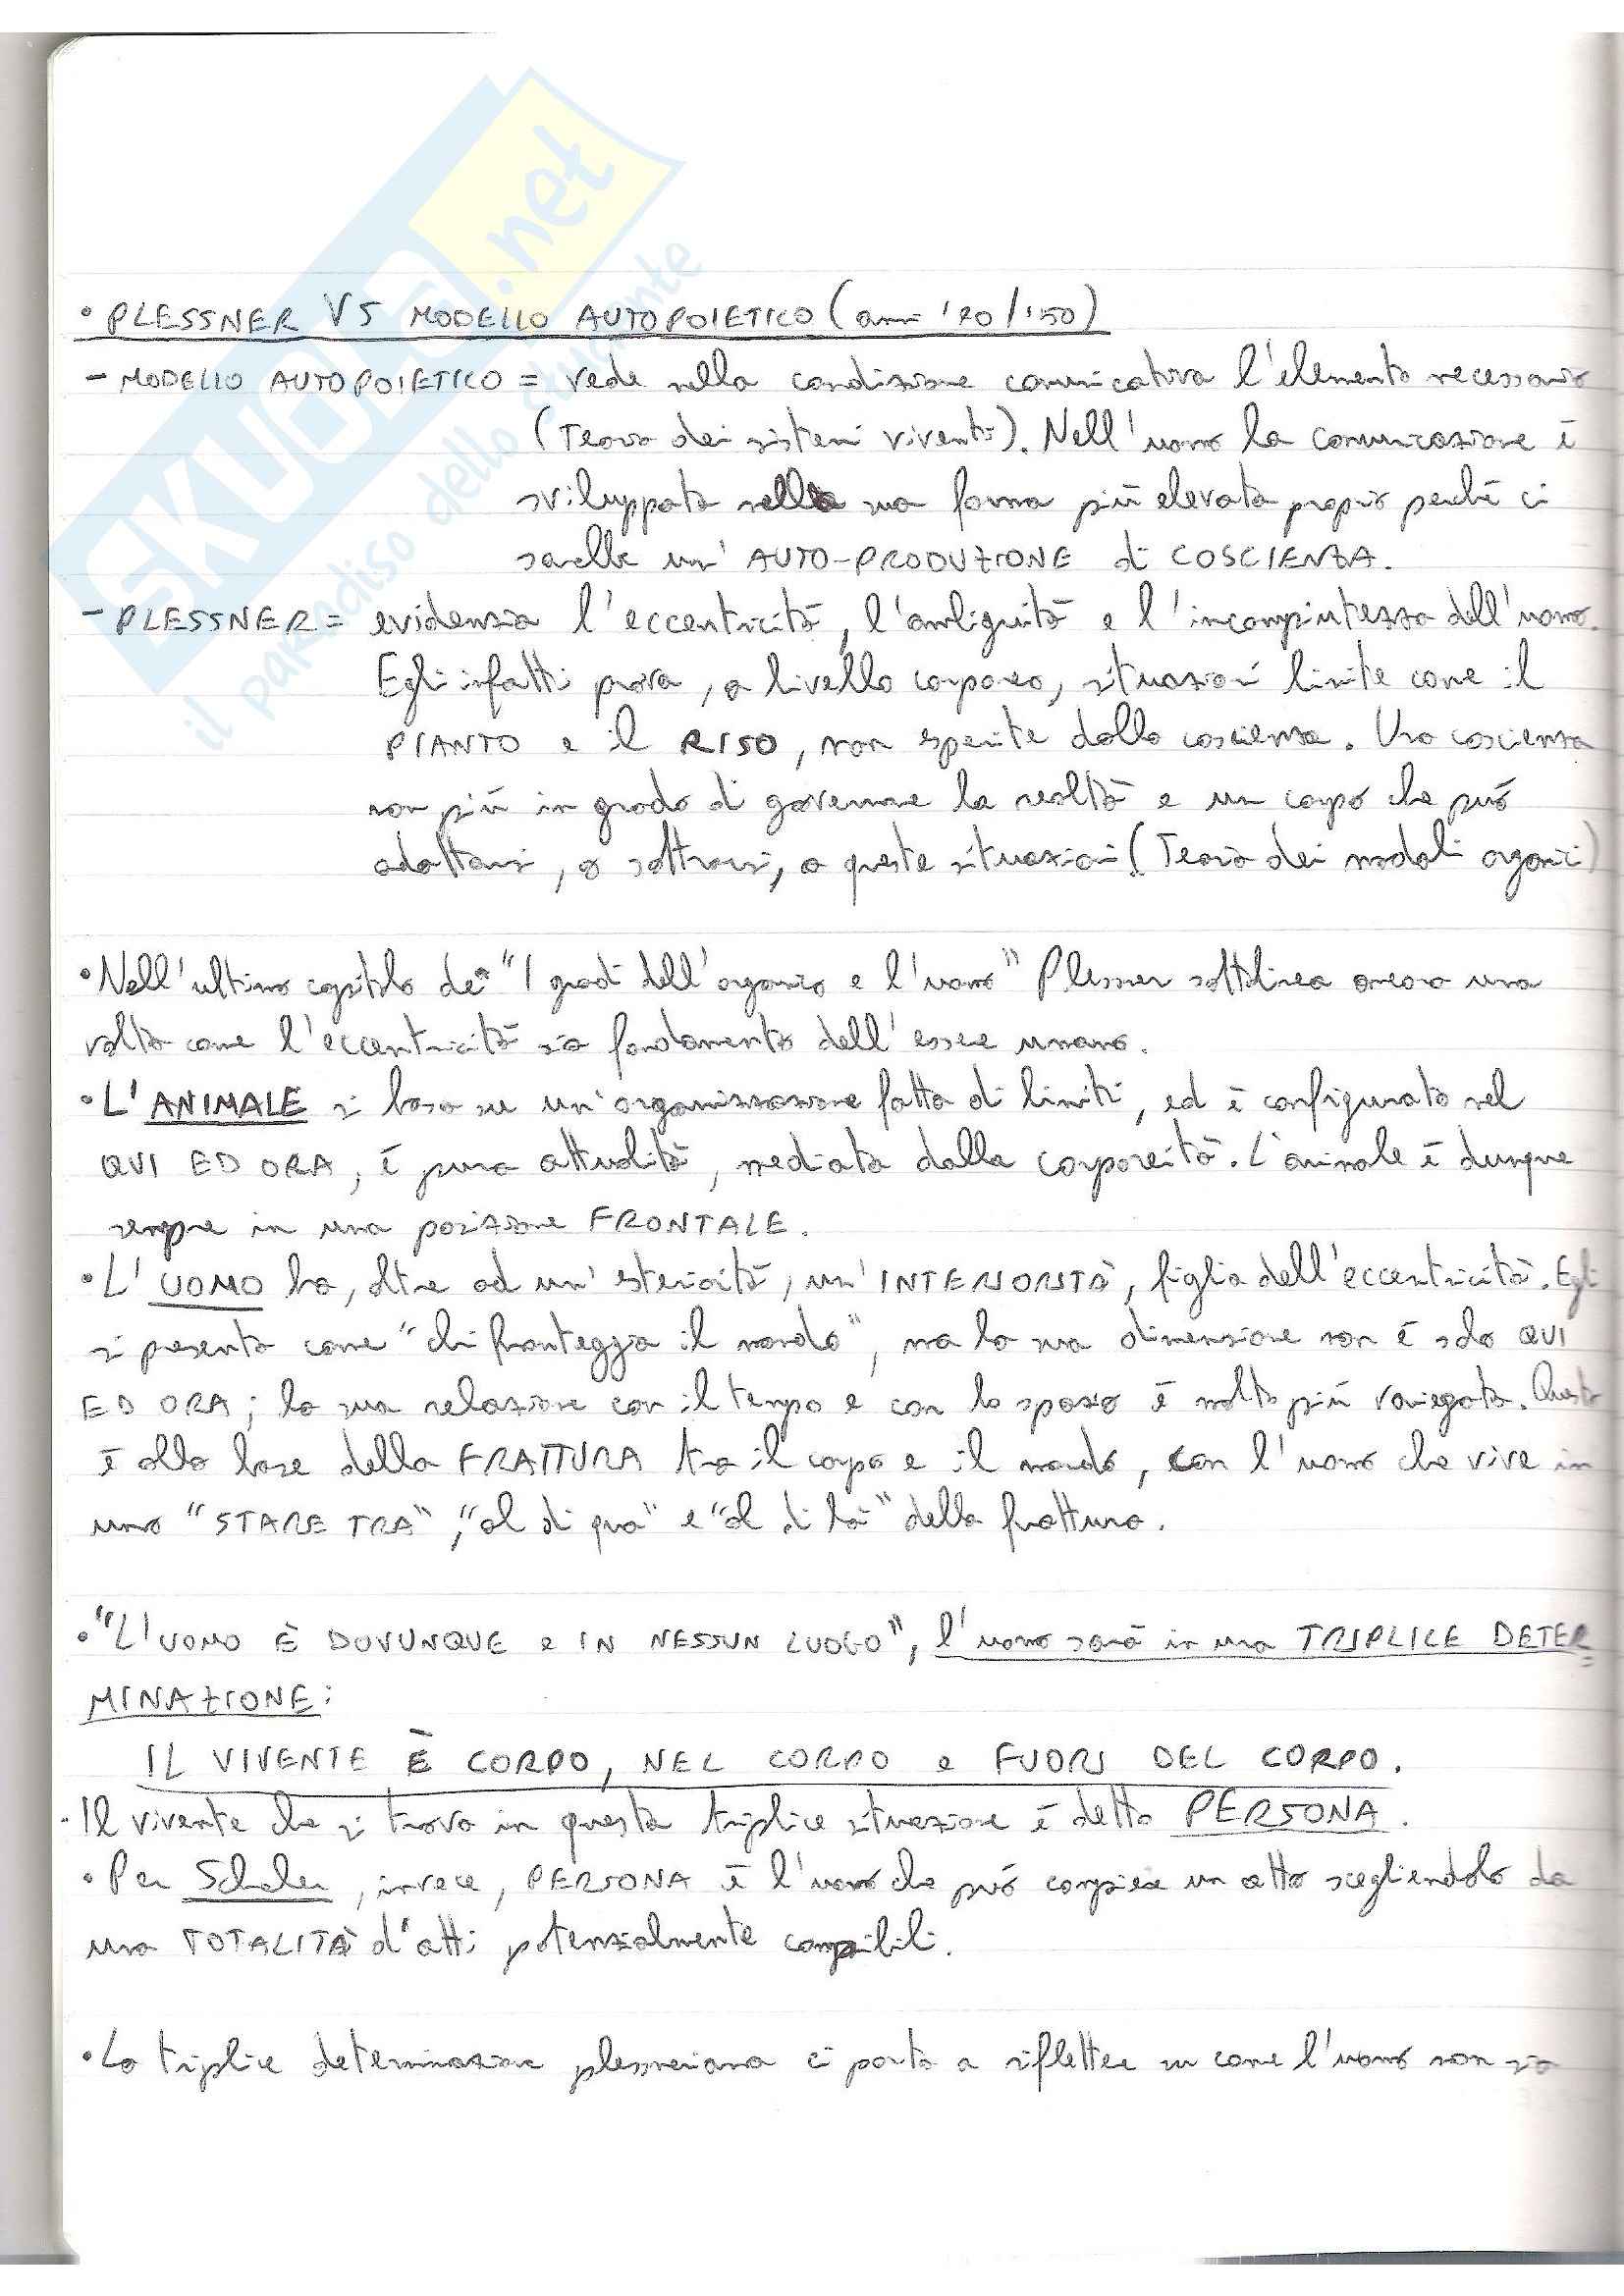 SKUOLA.net
il paradiso dello studente
• PLESSNER VS MODELLO AUTOPOIETICO (anni '20/'50)
- MODELLO AUTOPOIETICO = vede nella condizione comunicativa l'elemento necessario
(Teoria dei sistemi viventi). Nell'uomo la comunicazione è
sviluppata nella sua forma più elevata proprio perché ci
sarebbe un' AUTO-PRODUZIONE di COSCIENZA.
- PLESSNER = evidenzia l'eccentricità, l'ambiguità e l'incompiutezza dell'uomo.
Egli infatti prova, a livello corporeo, situazioni limite come il
PIANTO e il RISO, non esperite dalla coscienza. Una coscienza
non più in grado di governare la realtà e un corpo che può
adattarsi, o sottrarsi, a queste situazioni (Teoria dei modali organici)
• Nell'ultimo capitolo de "I gradi dell'organico e l'uomo" Plessner sottolinea ancora una
volta come l'eccentricità sia fondamento dell'essere umano.
• L'ANIMALE si basa su un'organizzazione fatta di limiti, ed è configurato nel
QUI ED ORA, è pura attualità, mediata dalla corporeità. L'animale è dunque
sempre in una posizione FRONTALE.
• L'UOMO ha, oltre ad un'esteriorità, un'INTERIORITÀ, figlia dell'eccentricità. Egli
si presenta come "chi fronteggia il mondo", ma la sua dimensione non è solo QUI
ED ORA; la sua relazione con il tempo e con lo spazio è molto più variegata. Questo
è alla base della FRATTURA tra il corpo e il mondo, con l'uomo che vive in
uno "STARE TRA", "al di qua" e "al di là" della frattura.
• "L'UOMO È DOVUNQUE e IN NESSUN LUOGO", l'uomo sarà in una TRIPLICE DETER
MINAZIONE:
IL VIVENTE È CORPO, NEL CORPO e FUORI DEL CORPO.
• Il vivente che si trova in questa triplice situazione è detto PERSONA.
• Per Scheler, invece, PERSONA è l'uomo che può compiere un atto scegliendolo da
una TOTALITÀ d'atti potenzialmente compibili.
• La triplice determinazione plessneriana ci porta a riflettere su come l'uomo non sia